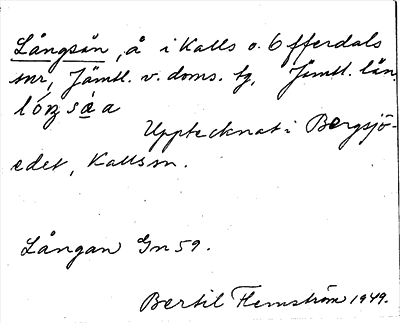 Långsån, å i Kalls o. Offerdals
snr, Jämtl. v. doms. tg, Jämtl. län.
lóŋsa̲a
Upptecknat i Bergsjö-
edet, Kallsn.
Långan Gn 59.
Bertil Flemström 1949.